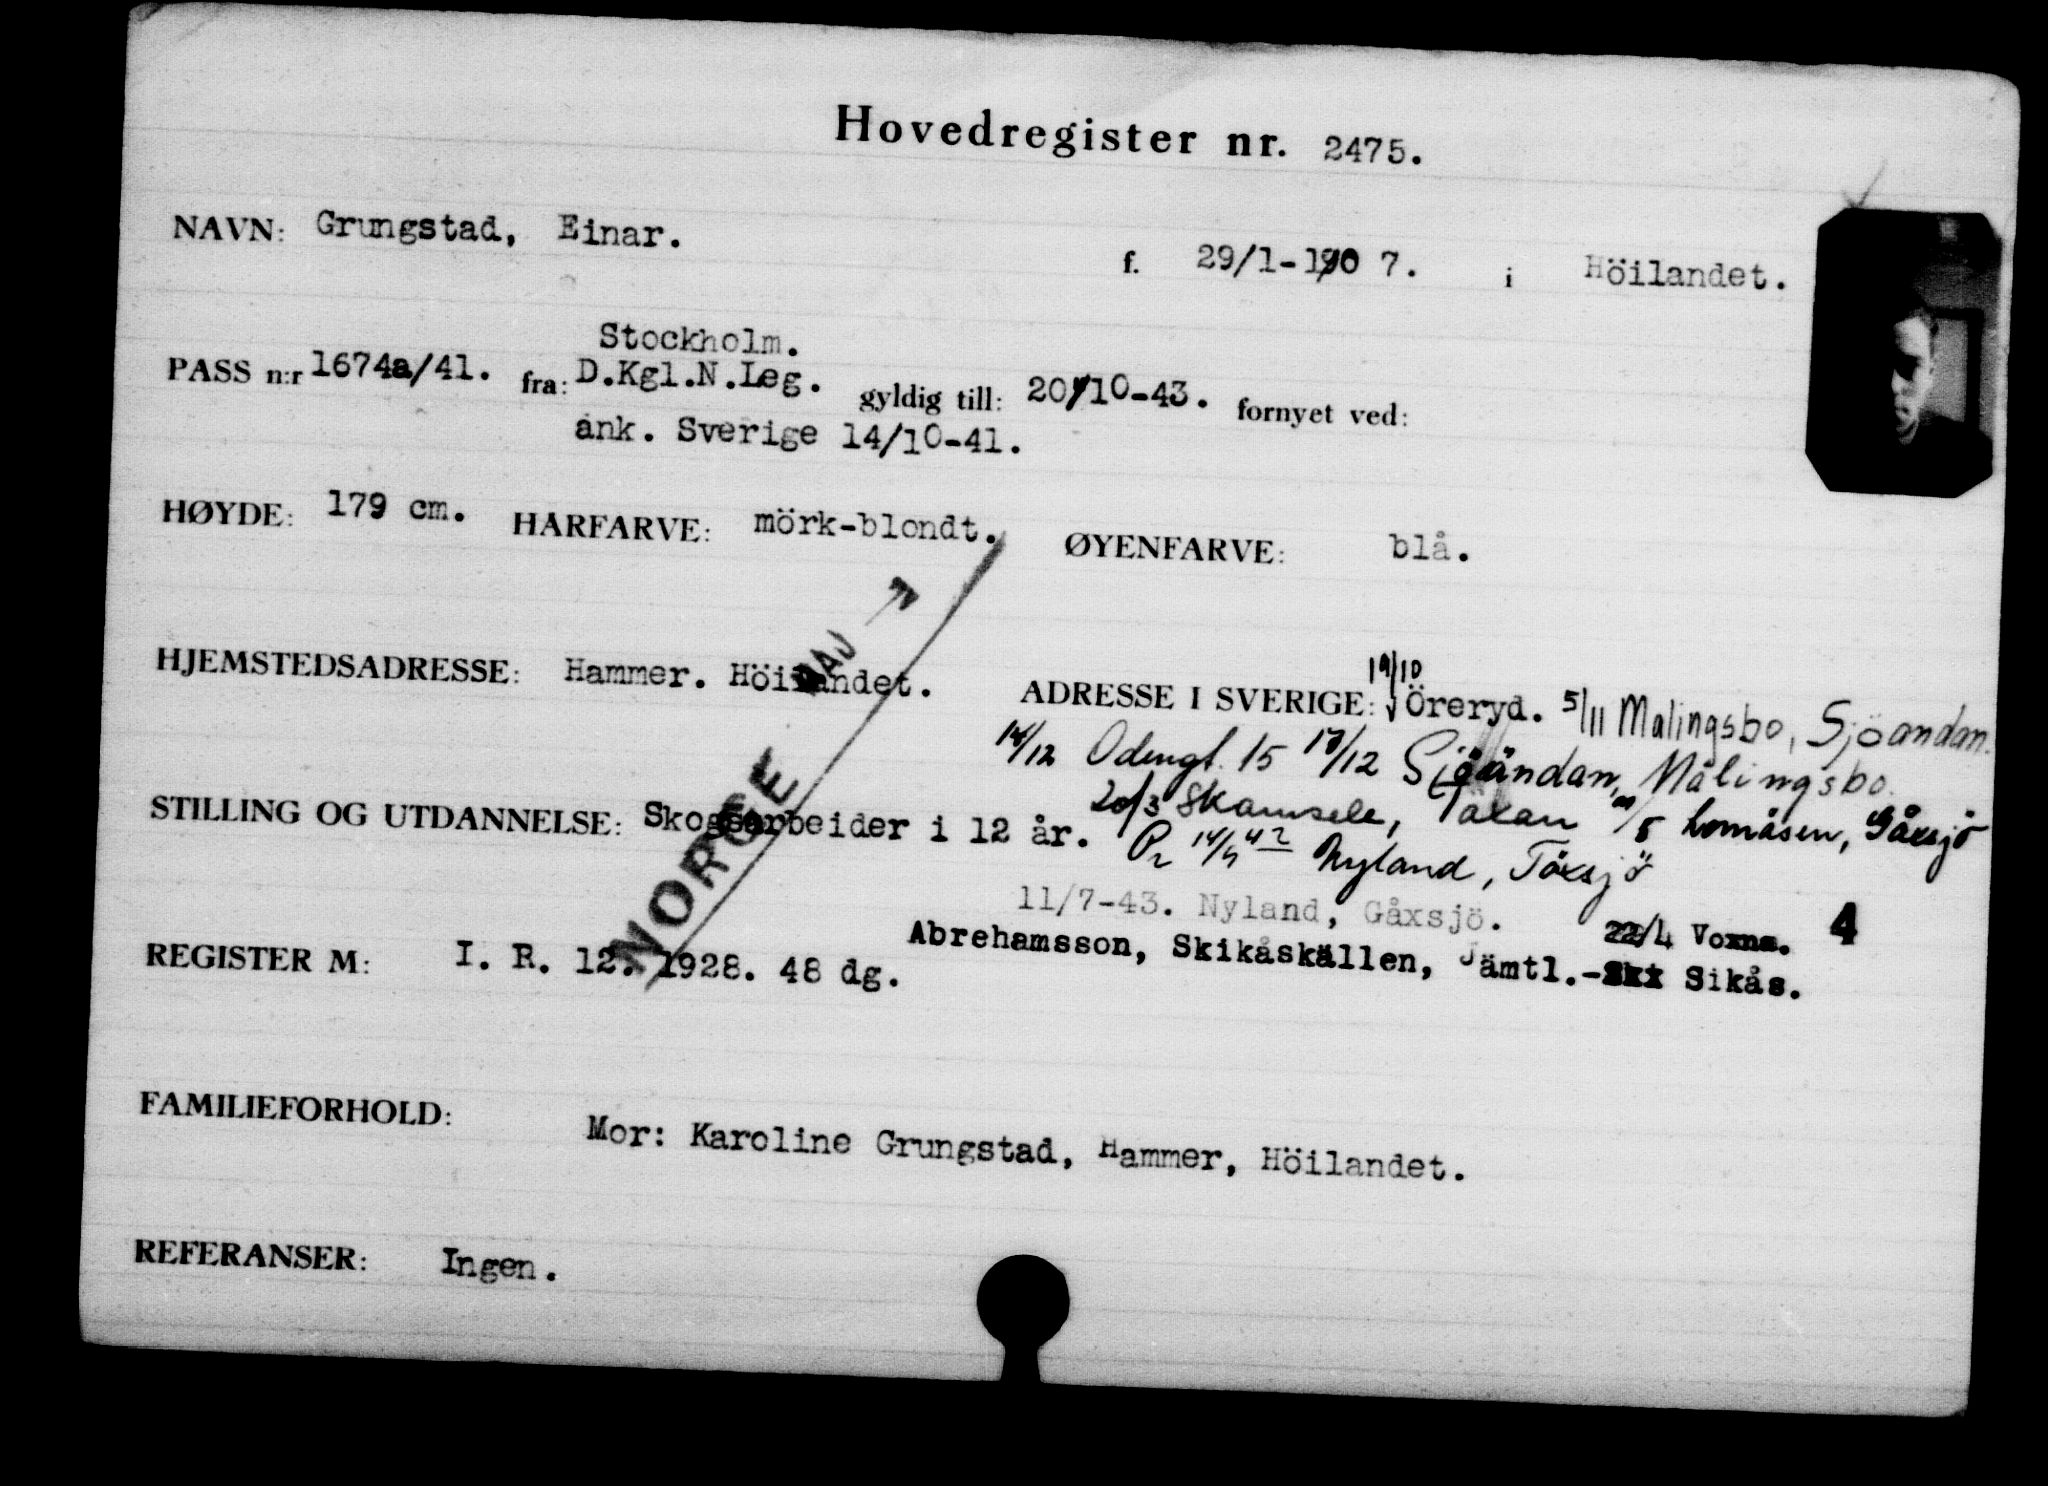 Hovedregister nr. 2475.
NAVN: Grungstad, Einar. f. 29/1-1907. i Höilandet.
Stockholm.
PASS n:r 1674a/41. fra: D.Kgl.N.Leg. gyldig till: 20/10-43. fornyet ved:
ank. Sverige 14/10-41.
HØYDE: 179 cm. HARFARVE: mörk-blondt. ØYENFARVE: blå.
HJEMSTEDSADRESSE: Hammer. Höilandet. ADRESSE I SVERIGE: 19/10 Öreryd. 5/11 Malingsbo, Sjöandan.
14/12 Odengt. 15 17/12 Sjöändan, Malingsbo.
STILLING OG UTDANNELSE: Skogsarbeider i 12 år. 20/3 Skamsele, Taxan /5 Lomåsen, Gåxsjö
Pr 14/5 42 Nyland, Töxsjö
11/7-43. Nyland, Gåxsjö. 22/4 Voxna. 4
Abrehamsson, Skikåskällen, Jämtl.- Sikås.
REGISTER M: I. R. 12. 1928. 48 dg.
NORGE
MAJ
FAMILIEFORHOLD:
Mor: Karoline Grungstad, Hammer, Höilandet.
REFERANSER: Ingen.